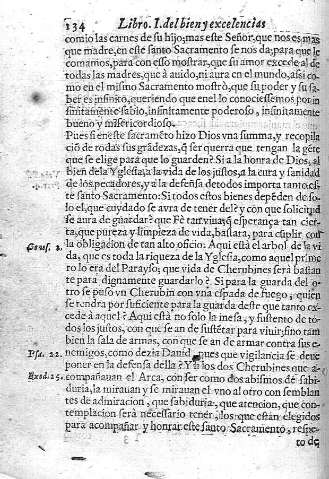 134 Libro. I. del bien y excelencias
comio las carnes de su hijo; mas este Señor, que nos es mas
que madre, en este santo Sacramento se nos da; para que le
comamos, para con esso mostrar, que su amor excede al de
todas las madres, que à auido, ni aura en el mundo, assi co-
mo en el mismo Sacramento mostrò, que su poder y su sa-
ber es infinito, queriendo que en el lo conociessemos por in
finitamente sabio, infinitamente poderoso, infinitamente
bueno y misericordioso.
Pues si en este sacramēto hizo Dios vna summa, y recopila
ciō de todas sus grādezas, q̄ ser querra que tengan la gēte
que se elige para que lo guarden? Si a la honra de Dios, al
bien dela Yglesia, a la vida de los justos, a la cura y sanidad
de los pecadores, y à la defensa de todos importa tanto es-
te santo Sacramento: Si todos estos bienes dependen de so-
lo el, que cuydado se aura de tener del? y con que solicitud
se aura de guardar? que Fè tan viua, q̄ esperança tan cier-
ta, que pureza y limpieza de vida, bastara, para cūplir con
la obligacion de tan alto oficio? Aqui està el arbol de la vi
Genes. 2.
da, que es toda la riqueza de la Yglesia, como aquel prime
ro lo era del Parayso; que vida de Cherubines serà bastan
te para dignamente guardarlo? Si para la guarda del o-
tro se puso vn Cherubin con vna espada de fuego, quien
se tendra por suficiente para la guarda deste que tanto ex-
cede à aquel? Aqui està no solo la mesa, y sustento de to-
dos los justos, con que se an de sustētar para viuir; sino tam
bien la sala de armas, con que se an de armar contra sus e-
Psa. 22.
nemigos, como dezia Dauid, pues que vigilancia se deue
poner en la defensa della? Y si los dos Cherubines que a-
Exod. 25.
compañauan el Arca, con ser como dos abismos de sabi-
duria, la mirauan y se mirauan el vno al otro con semblan
tes de admiracion, que sabiduria, que atencion, que con-
templacion serà necessario tener, los que estan elegidos
para acompañar y honrar este santo Sacramento, respe-
to de